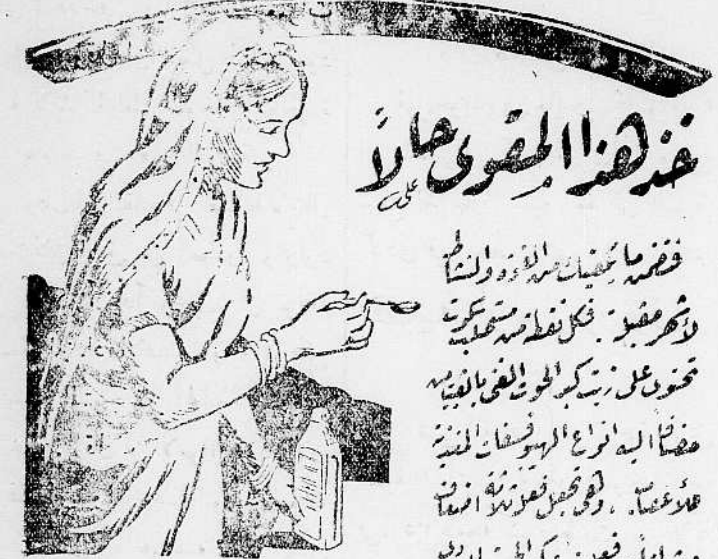 خذ هذا المقوى حالاً
فتضمن ما يكفيك من القوة والنشاط
لأشهر مقبلة. فكل نقطة من مستحلب سكوت
تحتوى على زيت كبد الحوت الغنى بالفيتامين
مضافاً اليه انواع الهيبوفسفات المغذية
للأعصاب. وهى تجعل فعله ثلاثة اضعاف
زيت كبد الحوت